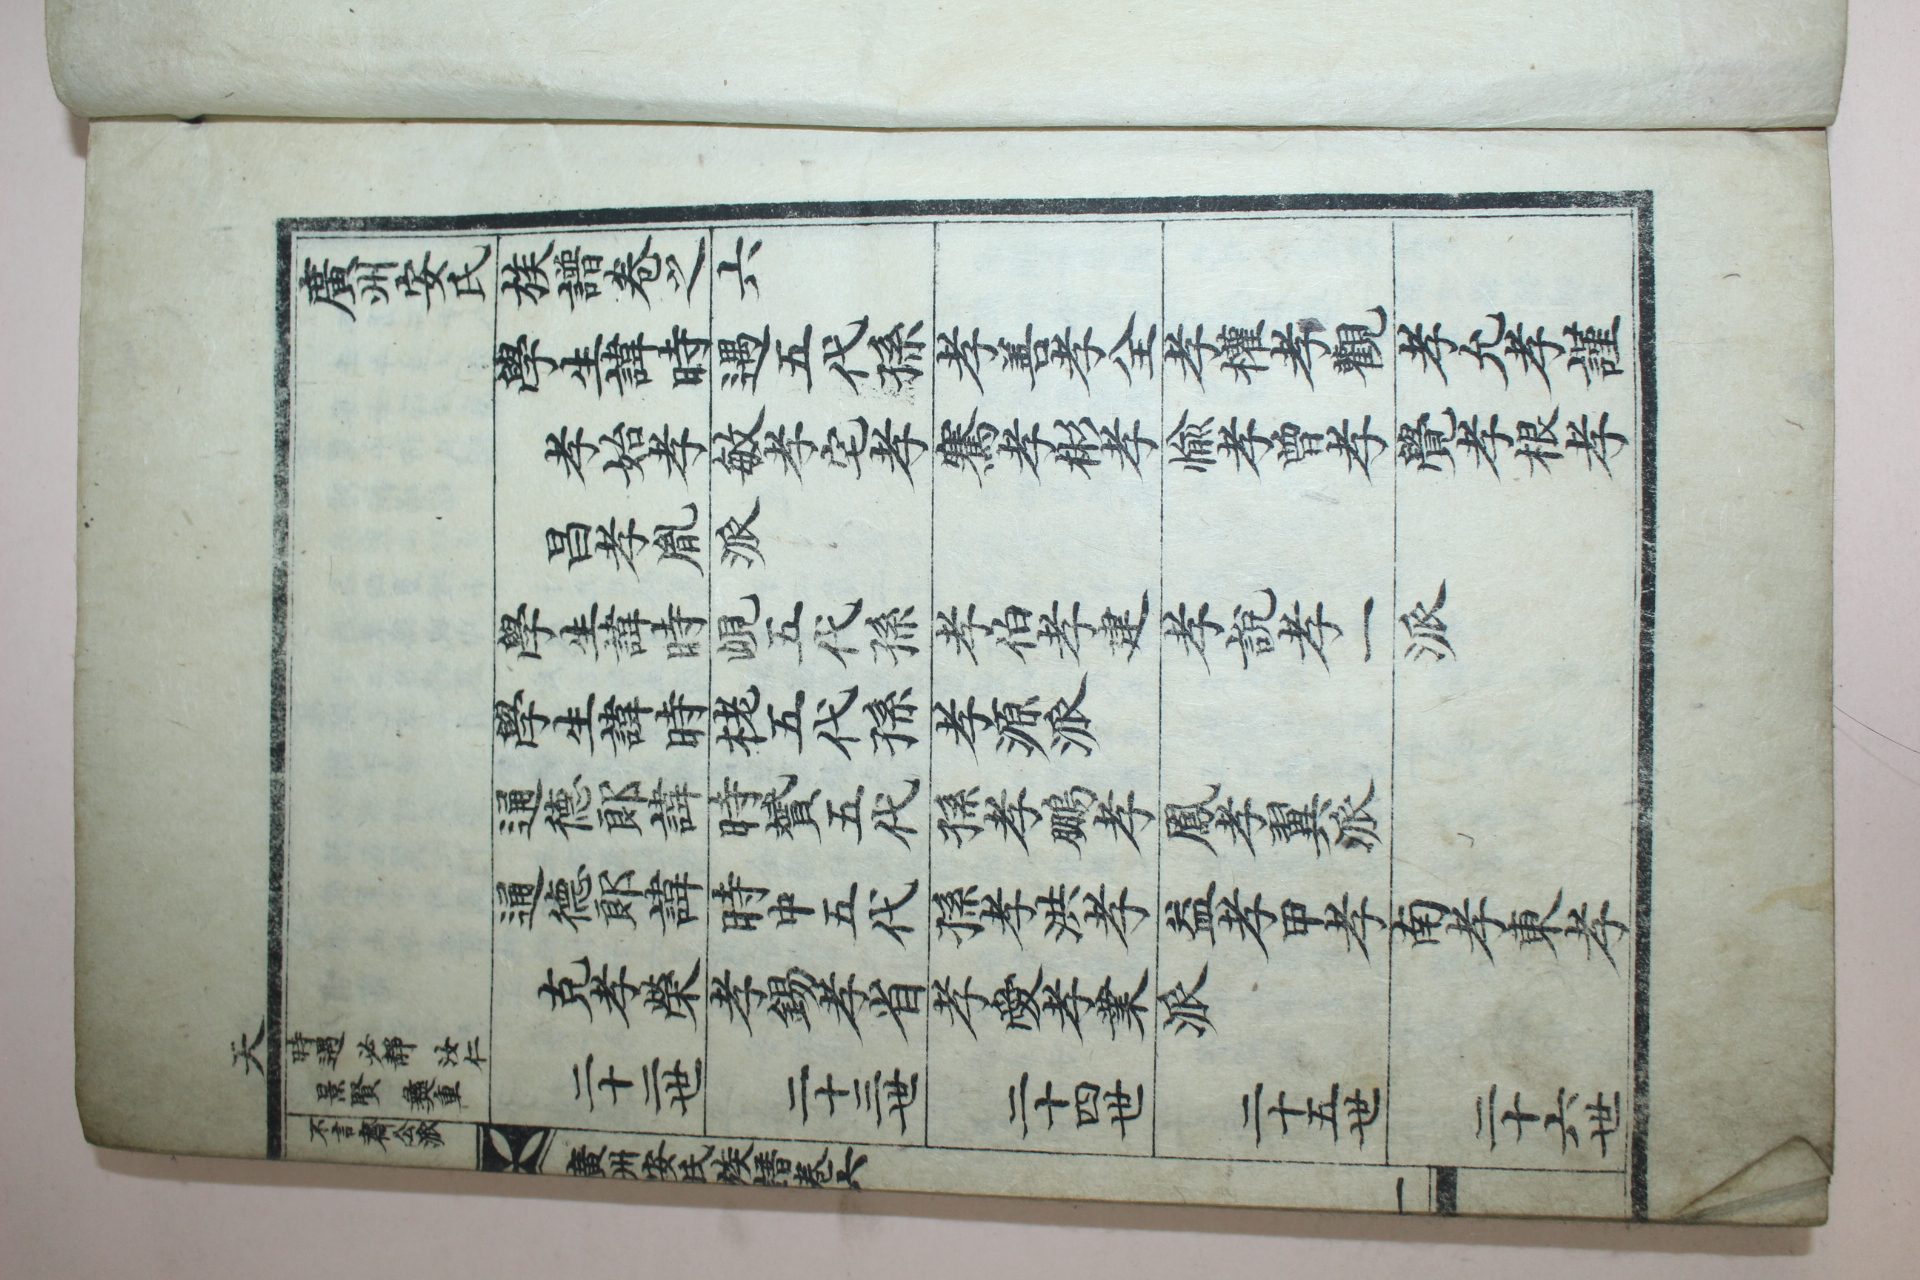 廣州安氏族譜卷之六
學生諱時遇五代孫孝善孝全孝權孝觀孝允孝謹
孝始孝敏孝宅孝騫孝彬孝儉孝曾孝覺孝根孝
昌孝胤派
學生諱時晛五代孫孝伯孝建孝說孝一派
學生諱時栳五代孫孝源派
通德郞諱時贇五代孫孝鵬孝鳳孝翼派
通德郞諱時中五代孫孝洪孝益孝甲孝南孝東孝
克孝榮孝錫孝省孝愛孝業派
二十二世
二十三世
二十四世
二十五世
二十六世
時遇 必都 汝仁
景賢 彝重
不言齋公派
天
廣州安氏族譜卷六
一